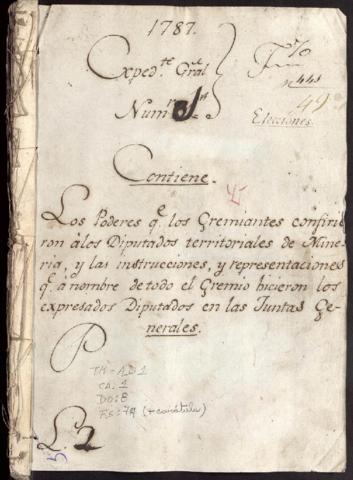 1787.
Exped.te Gral
Num.o 1
Elecciones.
49
Contiene.
Los Poderes q.e los Gremiantes confirie
ron à los Diputados territoriales de Mine
ria, y las instrucciones, y representaciones
q.e a nombre de todo el Gremio hicieron los
expresados Diputados en las Juntas Ge-
nerales.
TM-AD1
CA: 1
DO: 8
FS: 74 (+ carátula)
L. 2
5